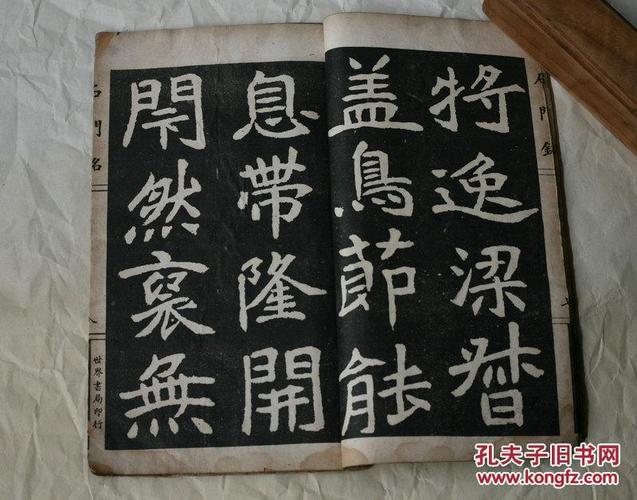 石門銘
七
将逸梁督
盖鳥節能
息帶隆開
閇然無
石門銘
八
世界書局印行
孔夫子旧书网
www.kongfz.com